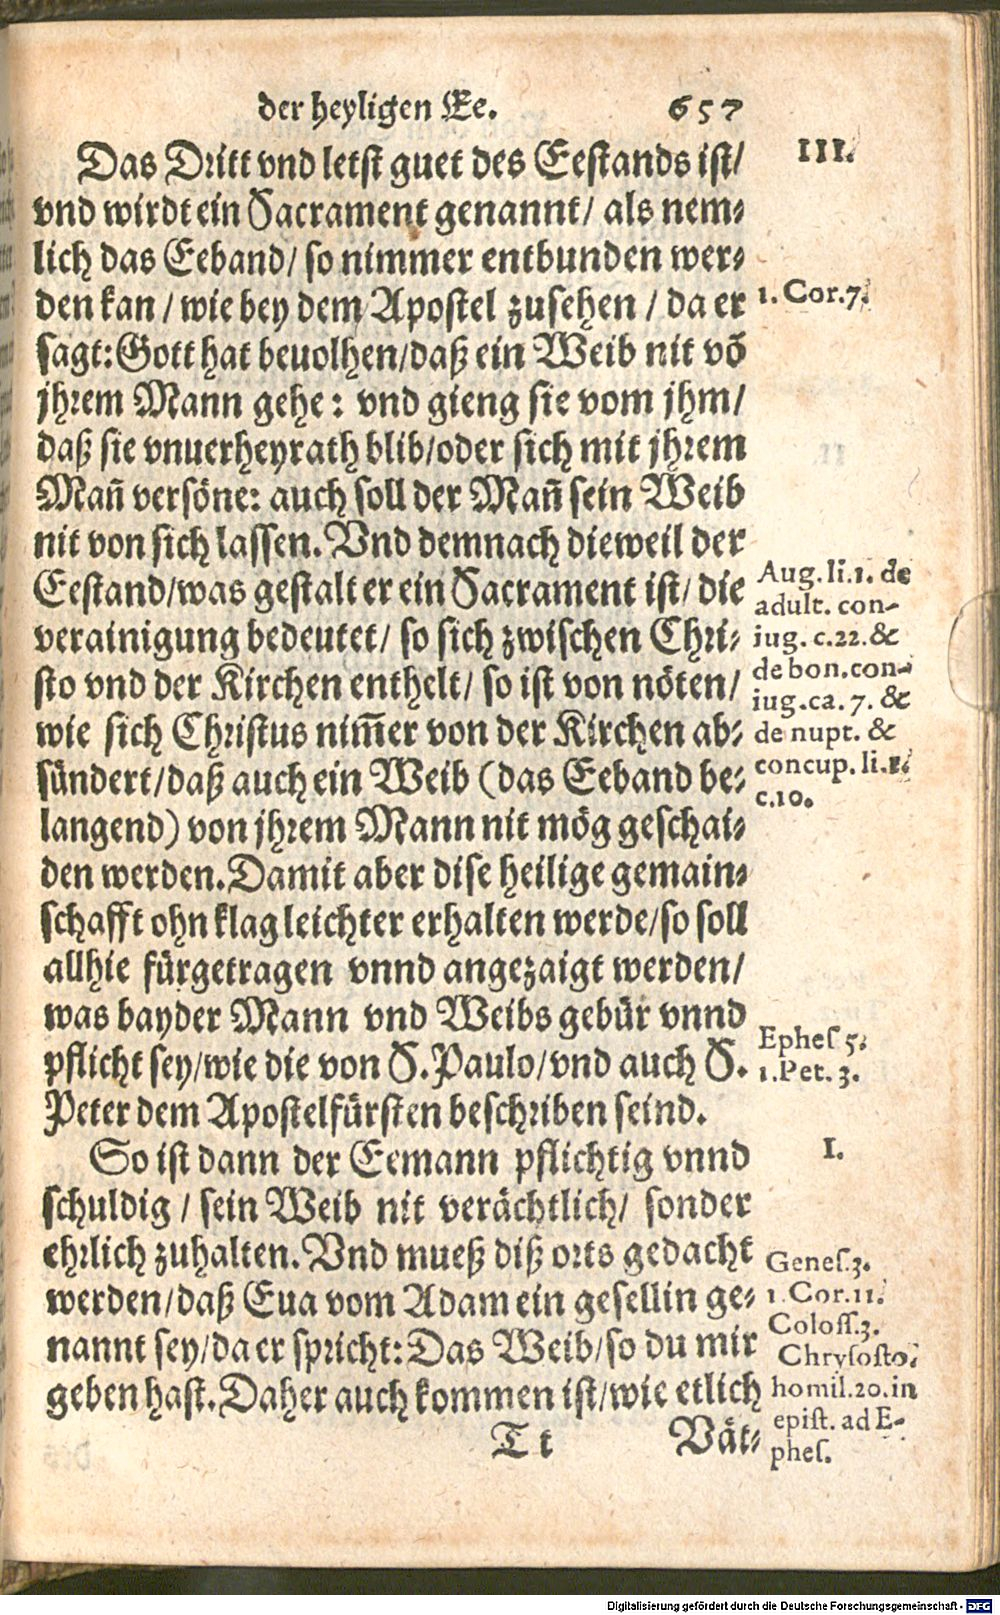 der heyligen Ee. 657
Das Dritt vnd letst guet des Eestands ist/
III.
vnd wirdt ein Sacrament genannt/ als nem⸗
lich das Eeband/ so nimmer entbunden wer⸗
den kan / wie bey dem Apostel zusehen / da er
1. Cor. 7.
sagt: Gott hat beuolhen/daß ein Weib nit võ
jhrem Mann gehe: vnd gieng sie vom jhm/
daß sie vnuerheyrath blib/oder sich mit jhrem
Mañ versöne: auch soll der Mañ sein Weib
nit von sich lassen. Vnd demnach dieweil der
Eestand/was gestalt er ein Sacrament ist/ die
verainigung bedeutet/ so sich zwischen Chri⸗
sto vnd der Kirchen enthelt/ so ist von nöten/
wie sich Christus nim̃er von der Kirchen ab⸗
sündert/daß auch ein Weib (das Eeband be⸗
langend) von jhrem Mann nit mög geschai⸗
Aug. li. 1. de
adult. con-
iug. c. 22. &
de bon. con-
iug. ca. 7. &
de nupt. &
concup. li. 1.
c. 10.
den werden. Damit aber dise heilige gemain⸗
schafft ohn klag leichter erhalten werde/so soll
allhie fürgetragen vnnd angezaigt werden/
was bayder Mann vnd Weibs gebür vnnd
pflicht sey/wie die von S. Paulo/vnd auch S.
Peter dem Apostelfürsten beschriben seind.
Ephes 5.
1. Pet. 3.
So ist dann der Eemann pflichtig vnnd
I.
schuldig / sein Weib nit verächtlich/ sonder
ehrlich zuhalten. Vnd mueß diß orts gedacht
werden/daß Eua vom Adam ein gesellin ge⸗
nannt sey/da er spricht: Das Weib/so du mir
geben hast. Daher auch kommen ist/wie etlich
Genes. 3.
1. Cor. 11.
Coloss. 3.
Chrysosto.
homil. 20. in
epist. ad E-
phes.
T t Vät⸗
Digitalisierung gefördert durch die Deutsche Forschungsgemeinschaft - DFG